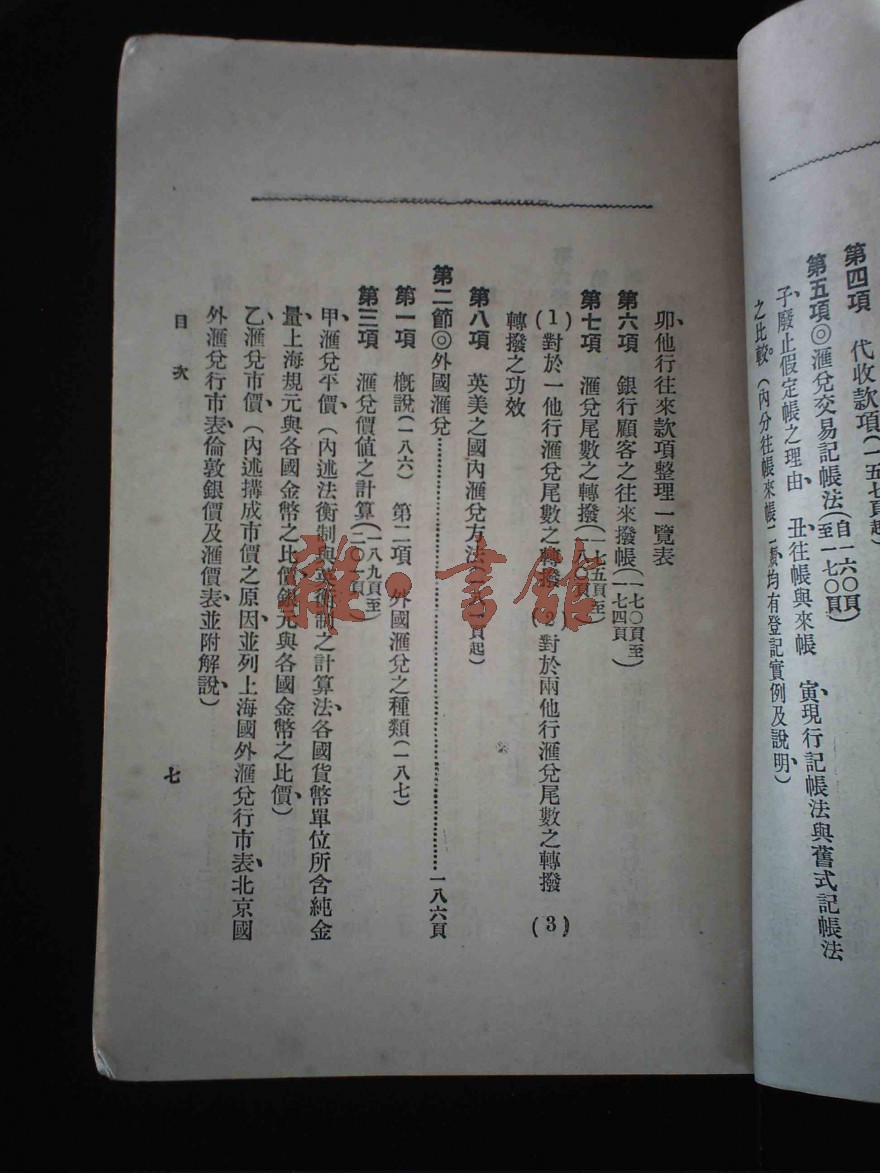 第四項　代收款項(一五七頁起)
第五項◎滙兌交易記帳法(自一六〇頁至一七〇頁)
子、廢止假定帳之理由、丑往帳與來帳　寅、現行記帳法與舊式記帳法
之比較。(內分往帳來帳二類均有登記實例及說明)
卯、他行往來款項整理一覽表
第六項　銀行顧客之往來撥帳(一七〇頁至一七四頁)
第七項　滙兌尾數之轉撥(一七五頁至一八〇頁)
(1)對於一他行滙兌尾數之轉撥　(2)對於兩他行滙兌尾數之轉撥　(3)
轉撥之功效
第八項　英美之國內滙兌方法(一八一頁起)
第二節◎外國滙兌……一八六頁
第一項　槪說(一八六)　第二項　外國滙兌之種類(一八七)
第三項　滙兌價值之計算(一八九頁至二〇一頁)
甲、滙兌平價、(內述法衡制與英衡制之計算法、各國貨幣單位所含純金
量、上海規元與各國金幣之比價、銀元與各國金幣之比價、)
乙、滙兌市價、(內述搆成市價之原因、並列上海國外滙兌行市表、北京國
外滙兌行市表、倫敦銀價及滙價表、並附解說、)
目次
七
雜·書館